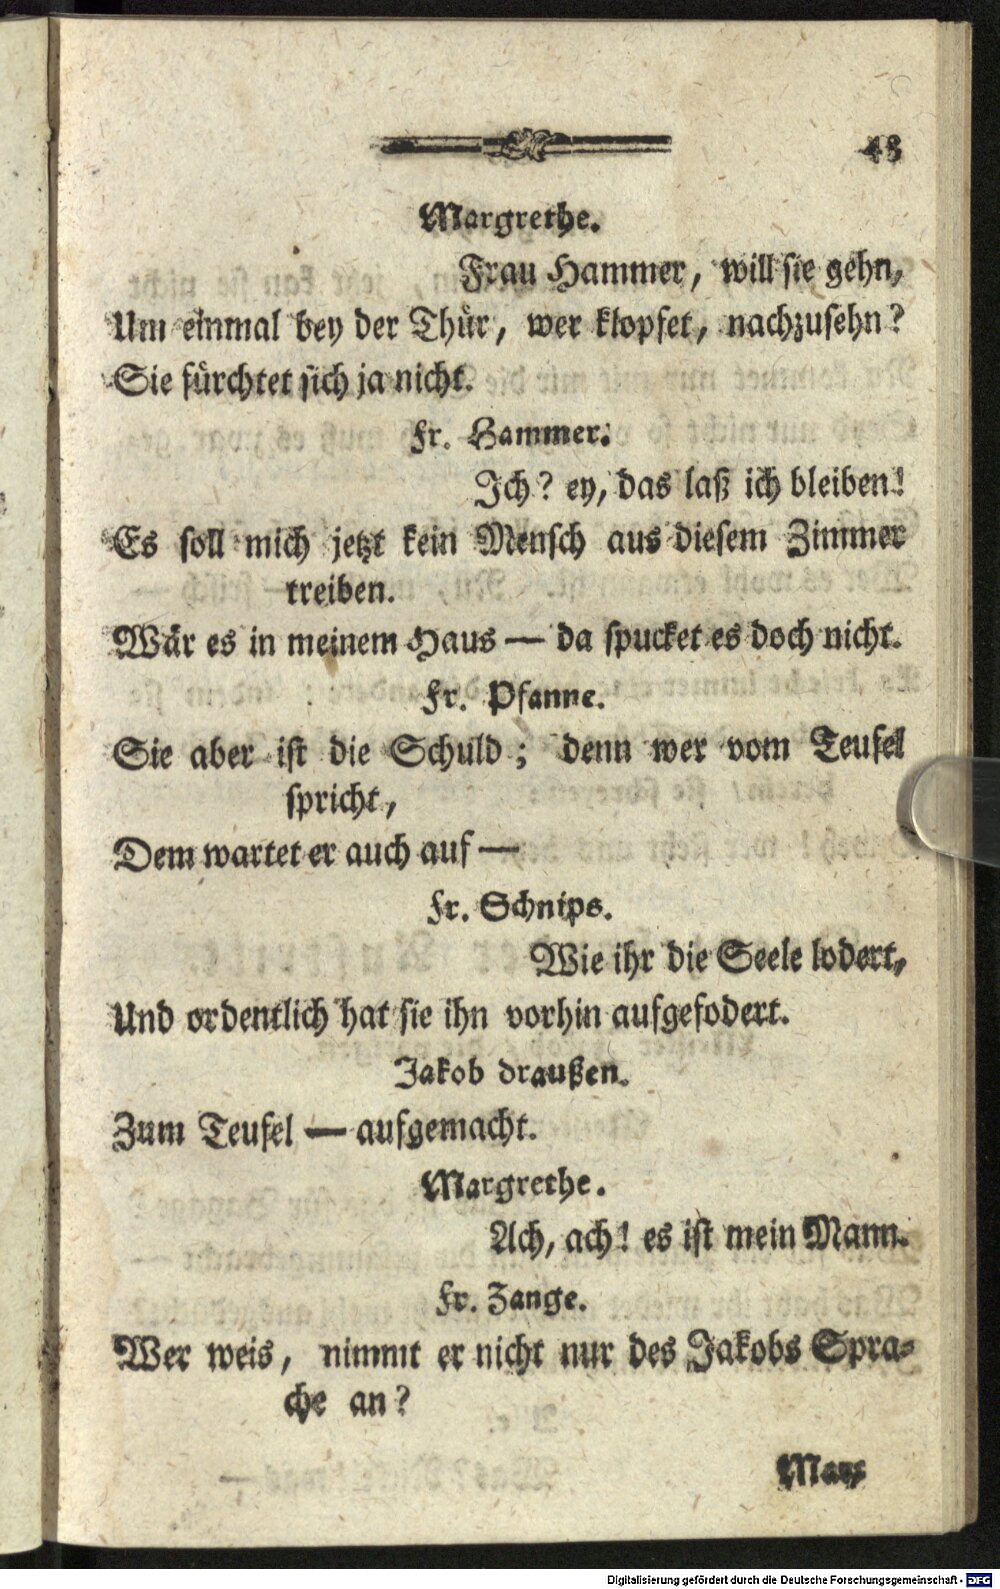 43
Margrethe.
Frau Hammer, will sie gehn,
Um einmal bey der Thür, wer klopfet, nachzusehn?
Sie fürchtet sich ja nicht.
Fr. Hammer.
Ich? ey, das laß ich bleiben!
Es soll mich jetzt kein Mensch aus diesem Zimmer
treiben.
Wär es in meinem Haus — da spucket es doch nicht.
Fr. Pfanne.
Sie aber ist die Schuld; denn wer vom Teufel
spricht,
Dem wartet er auch auf —
Fr. Schnips.
Wie ihr die Seele lodert,
Und ordentlich hat sie ihn vorhin aufgefodert.
Jakob draußen.
Zum Teufel — aufgemacht.
Margrethe.
Ach, ach! es ist mein Mann.
Fr. Zange.
Wer weis, nimmt er nicht nur des Jakobs Spra-
che an?
Digitalisierung gefördert durch die Deutsche Forschungsgemeinschaft - DFG